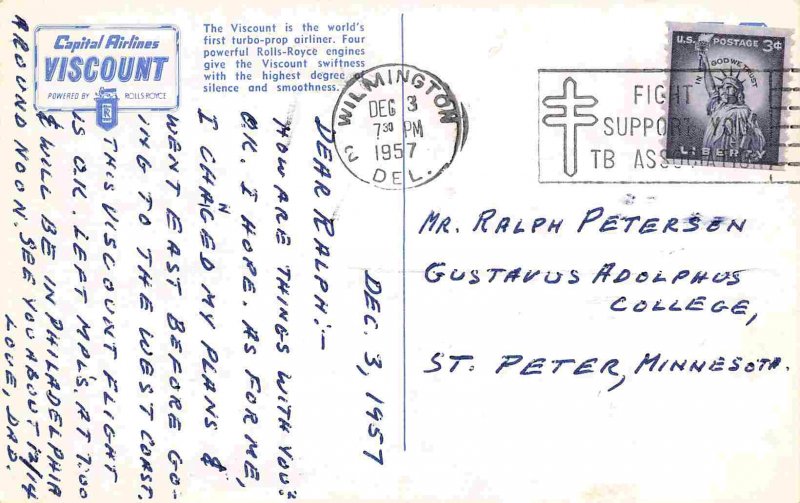 Capital Airlines
VISCOUNT
POWERED BY ROLLS-ROYCE
The Viscount is the world's
first turbo-prop airliner. Four
powerful Rolls-Royce engines
give the Viscount swiftness
with the highest degree of
silence and smoothness.
WILMINGTON
DEC 3
7 30 PM
1957
2 DEL.
FIGHT
SUPPORT YOUR
TB ASSOCIATION
U.S. POSTAGE 3¢
IN GOD WE TRUST
LIBERTY
DEC. 3, 1957
DEAR RALPH:—
HOW ARE THINGS WITH YOU?
O.K. I HOPE. AS FOR ME,
I CHANGED MY PLANS &
WENT EAST BEFORE GO-
ING TO THE WEST COAST.
THIS VISCOUNT FLIGHT
IS O.K. LEFT MPL'S. AT 7:00
& WILL BE IN PHILADELPHIA
AROUND NOON. SEE YOU ABOUT 12/14
LOVE, DAD.
MR. RALPH PETERSEN
GUSTAVUS ADOLPHUS
COLLEGE,
ST. PETER, MINNESOTA.